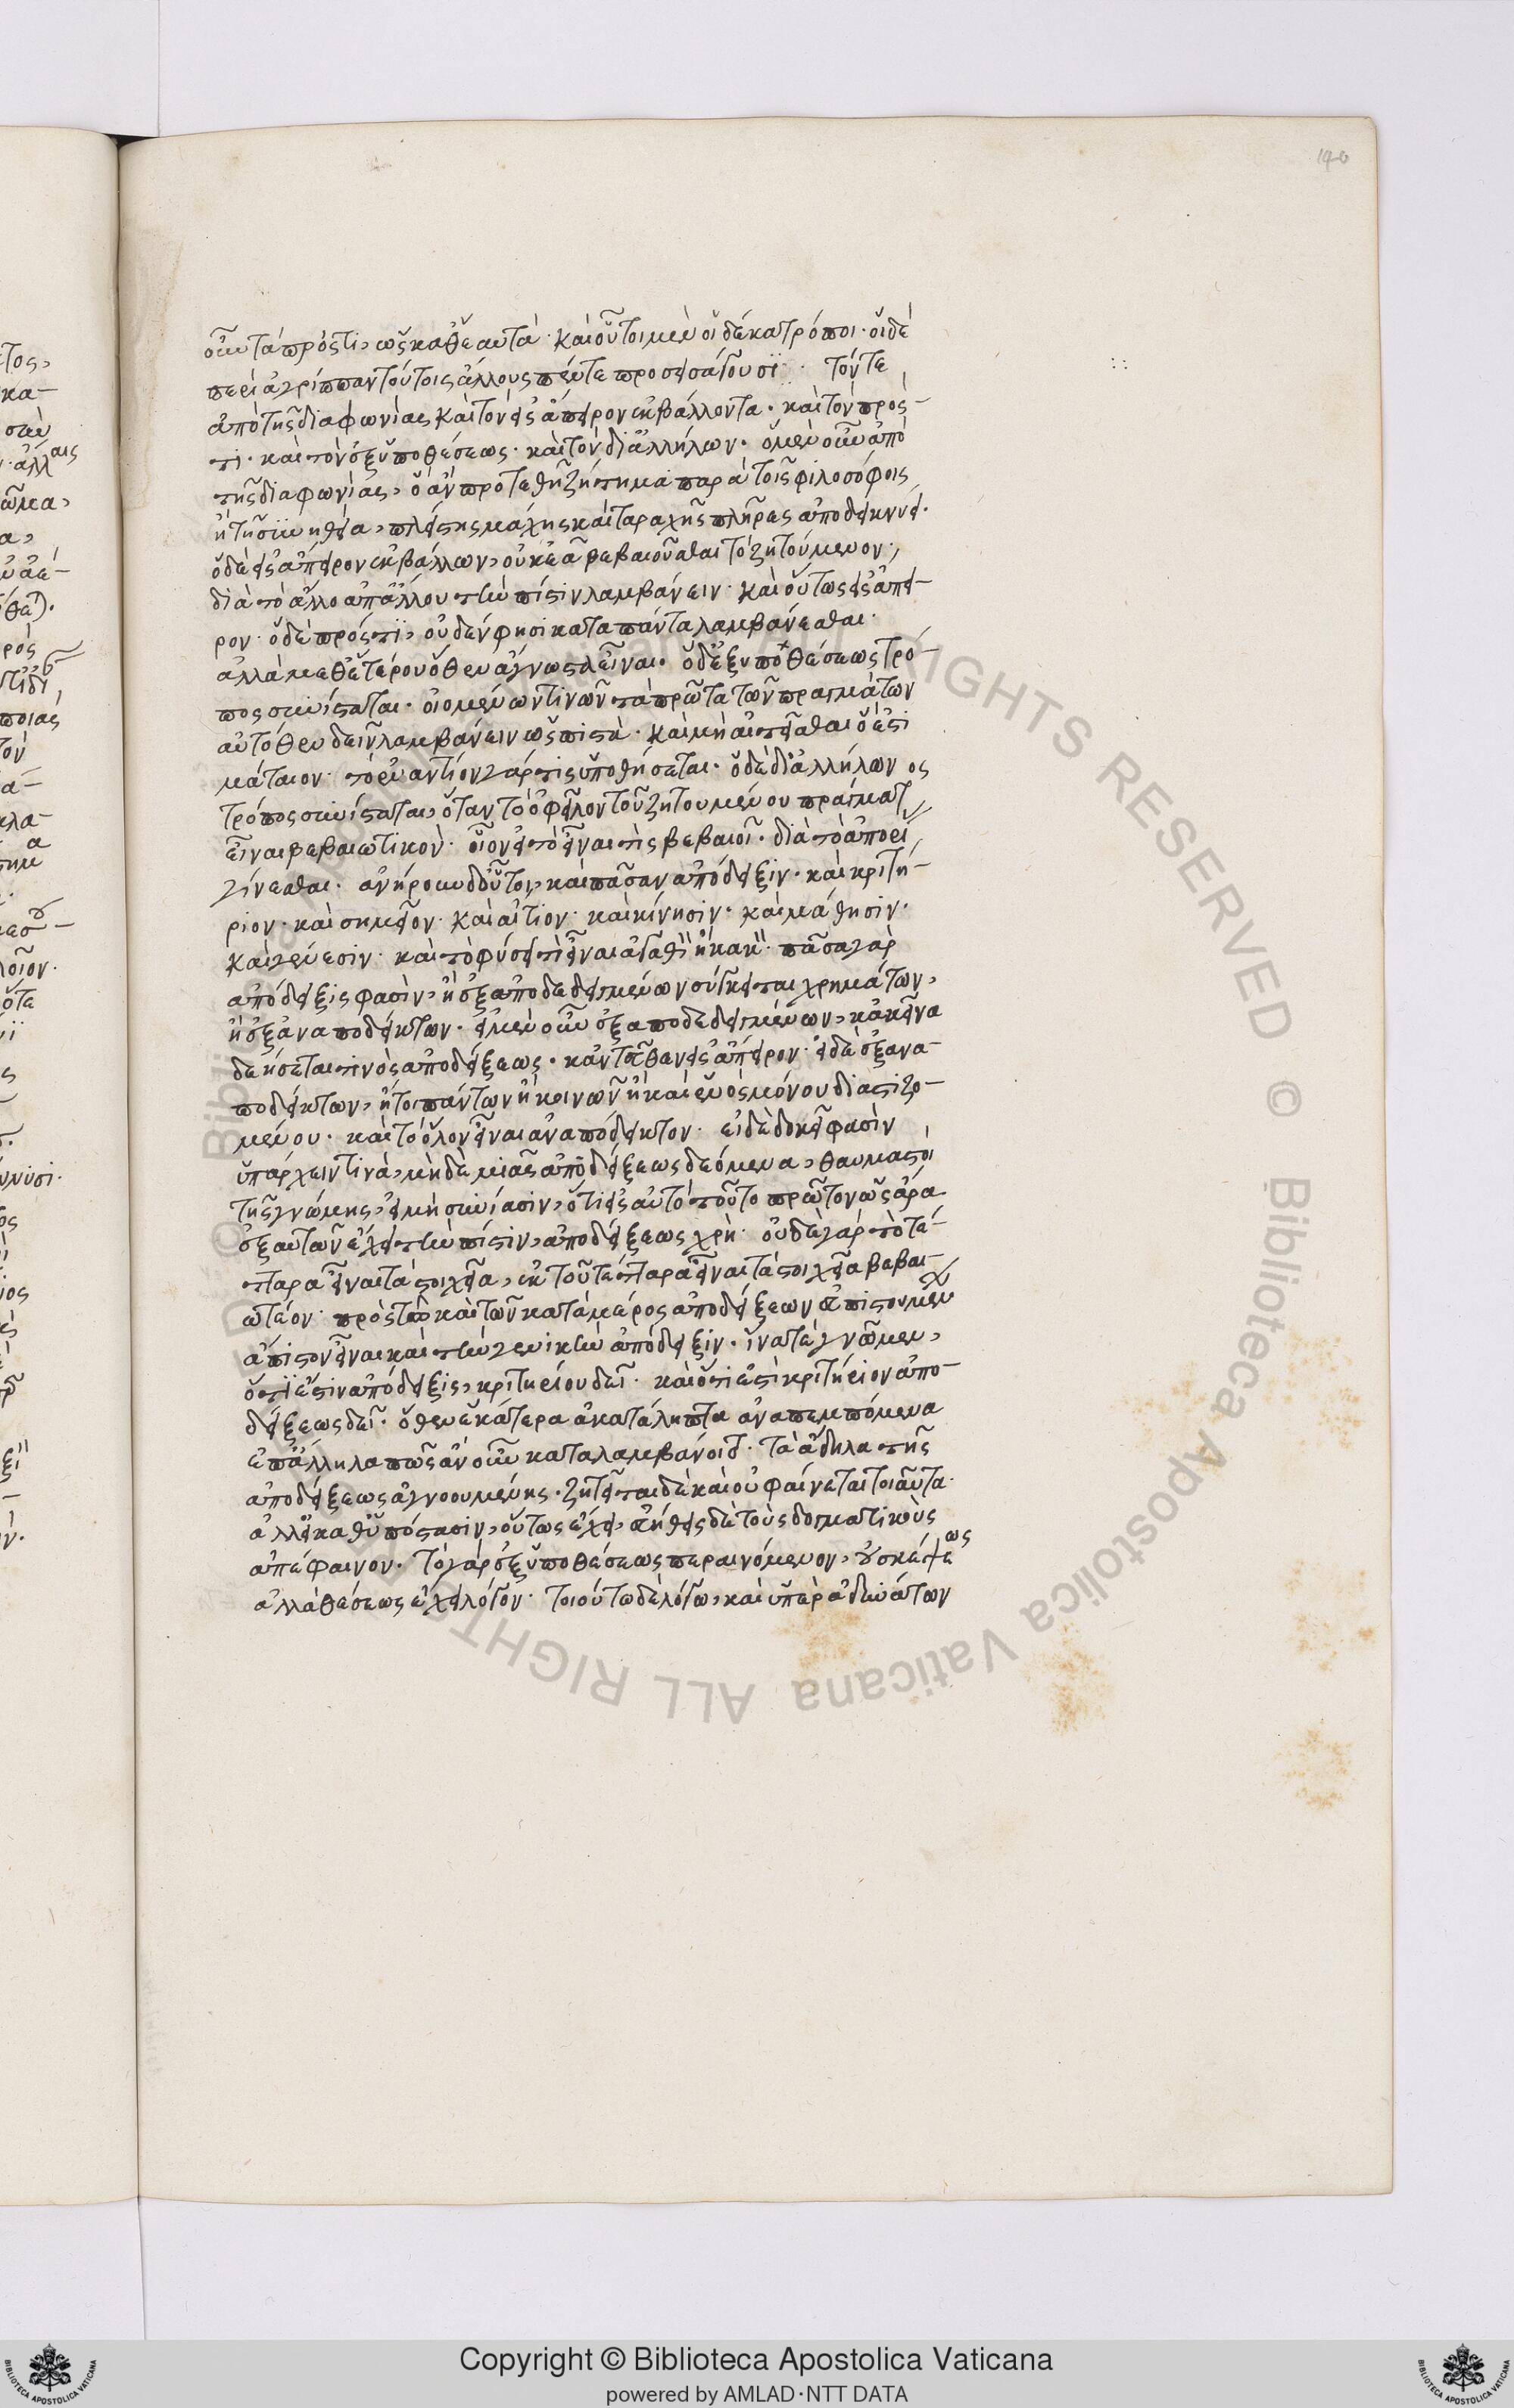 οὖν τὰ πρός τι, ὡς καθ' ἑαυτά· καὶ οὗτοι μὲν οἱ δέκα τρόποι· οἱ δὲ
περὶ ἀγρίππαν τούτοις ἄλλους πέντε προσεισάγουσι· τόν τε
ἀπὸ τῆς διαφωνίας καὶ τὸν εἰς ἄπειρον ἐκβάλλοντα· καὶ τὸν πρός
τι· καὶ τὸν ἐξ ὑποθέσεως· καὶ τὸν δι' ἀλλήλων· ὁ μὲν οὖν ἀπὸ
τῆς διαφωνίας, ὃ ἂν προτεθῇ ζήτημα παρὰ τοῖς φιλοσόφοις
ἢ τῇ συνηθεία, πλείστης μάχης καὶ ταραχῆς πλῆρες ἀποδεικνύει·
ὁ δὲ εἰς ἄπειρον ἐκβάλλων, οὐκ ἐᾷ βεβαιοῦσθαι τὸ ζητούμενον·
διὰ τὸ ἄλλο ἀπ' ἄλλου τὴν πίστιν λαμβάνειν· καὶ οὕτως εἰς ἄπει-
ρον· ὁ δὲ πρός τι, οὐδέν φησι κατα πάντα λαμβάνεσθαι·
ἀλλὰ μεθ' ἑτέρου ὅθεν ἄγνωστα εἶναι· ὁ δ' ἐξ ὑποθέσεως τρό-
πος συνίσταται· οἰομένων τινῶν τὰ πρῶτα τῶν πραγμάτων
αὐτόθεν δεῖν λαμβάνειν ὡς πιστὰ· καὶ μὴ αἰτεῖσθαι ὅ ἐστι
μάταιον· τὸ ἐναντίον γάρ τις ὑποθήσεται· ὁ δὲ δι' ἀλλήλων
τρόπος συνίσταται, ὅταν τὸ ὀφεῖλον τοῦ ζητουμένου πράγματος
εἶναι βεβαιωτικὸν· οἷον εἰ τὸ εἶναί τις βεβαιοῖ· διὰ τὸ ἀπορ
γίνεσθαι· ἀνήρουν δ' οὗτοι, καὶ πᾶσαν ἀπόδειξιν· καὶ κριτή-
ριον· καὶ σημεῖον· καὶ αἴτιον· καὶ κίνησιν· καὶ μάθησιν·
καὶ γένεσιν· καὶ τὸ φύσει τι εἶναι ἀγαθὸν ἢ κακόν· πᾶσα γὰρ
ἀπόδειξις φασὶν, ἢ ἐξ ἀποδεδειγμένων σύγκειται χρημάτων,
ἢ ἐξ ἀναποδείκτων· εἰ μὲν οὖν ἐξ ἀποδεδειγμένων, κἀκεῖνα
δεήσεταί τινος ἀποδείξεως· κἀντεῦθεν εἰς ἄπειρον· εἰ δὲ ἐξ ἀνα-
ποδείκτων, ἤτοι πάντων ἢ τινῶν ἢ καὶ ἑνὸς μόνου διασταζο-
μένου· καὶ τὸ ὅλον εἶναι ἀναπόδεικτον· εἰ δὲ δοκεῖ φασὶν
ὑπάρχειν τινὰ, μηδὲ μιᾶς ἀποδείξεως δεόμενα, θαυμαστοὶ
τῆς γνώμης, εἰ μὴ συνίασιν, ὅτι εἰς αὐτὸ τοῦτο πρῶτον ὡς ἄρα
ἐξ αὐτῶν ἔχει τὴν πίστιν, ἀποδείξεως χρή· οὐδὲ γὰρ τὸ τέ-
τταρα εἶναι τὰ στοιχεῖα, ἐκ τοῦ τέτταρα εἶναι τὰ στοιχεῖα βεβαι-
ωτέον· πρὸς τῷ καὶ τῶν κατὰ μέρος ἀποδείξεων ἀπιστουμένων
ἄπιστον εἶναι καὶ τὴν γενικὴν ἀπόδειξιν· ἵνα τε γνῶμεν,
ὅτι ἔστιν ἀπόδειξις, κριτηρίου δεῖ· καὶ ὅτι ἔστι κριτήριον ἀπο-
δείξεως δεῖ· ὅθεν ἑκάτερα ἀκατάληπτα ἀναπεμπόμενα
ἐπ' ἄλληλα πῶς ἂν οὖν καταλαμβάνοιτο· τὰ ἄδηλα τῆς
ἀποδείξεως ἀγνοουμένης· ζητεῖται δὲ καὶ οὐ φαίνεται τοιαῦτα·
ἀλλ' εἰ καθ' ὑπόστασιν, οὕτως ἔχει, εὐήθεις δὲ τοὺς δογματικοὺς
ἀπέφαινον· τὸ γὰρ ἐξ ὑποθέσεως περαινόμενον, οὐ σκέψεως
ἀλλὰ θέσεως ἔχει λόγον· τοιούτω δὲ λόγω, καὶ ὑπὲρ ἀδυνάτων